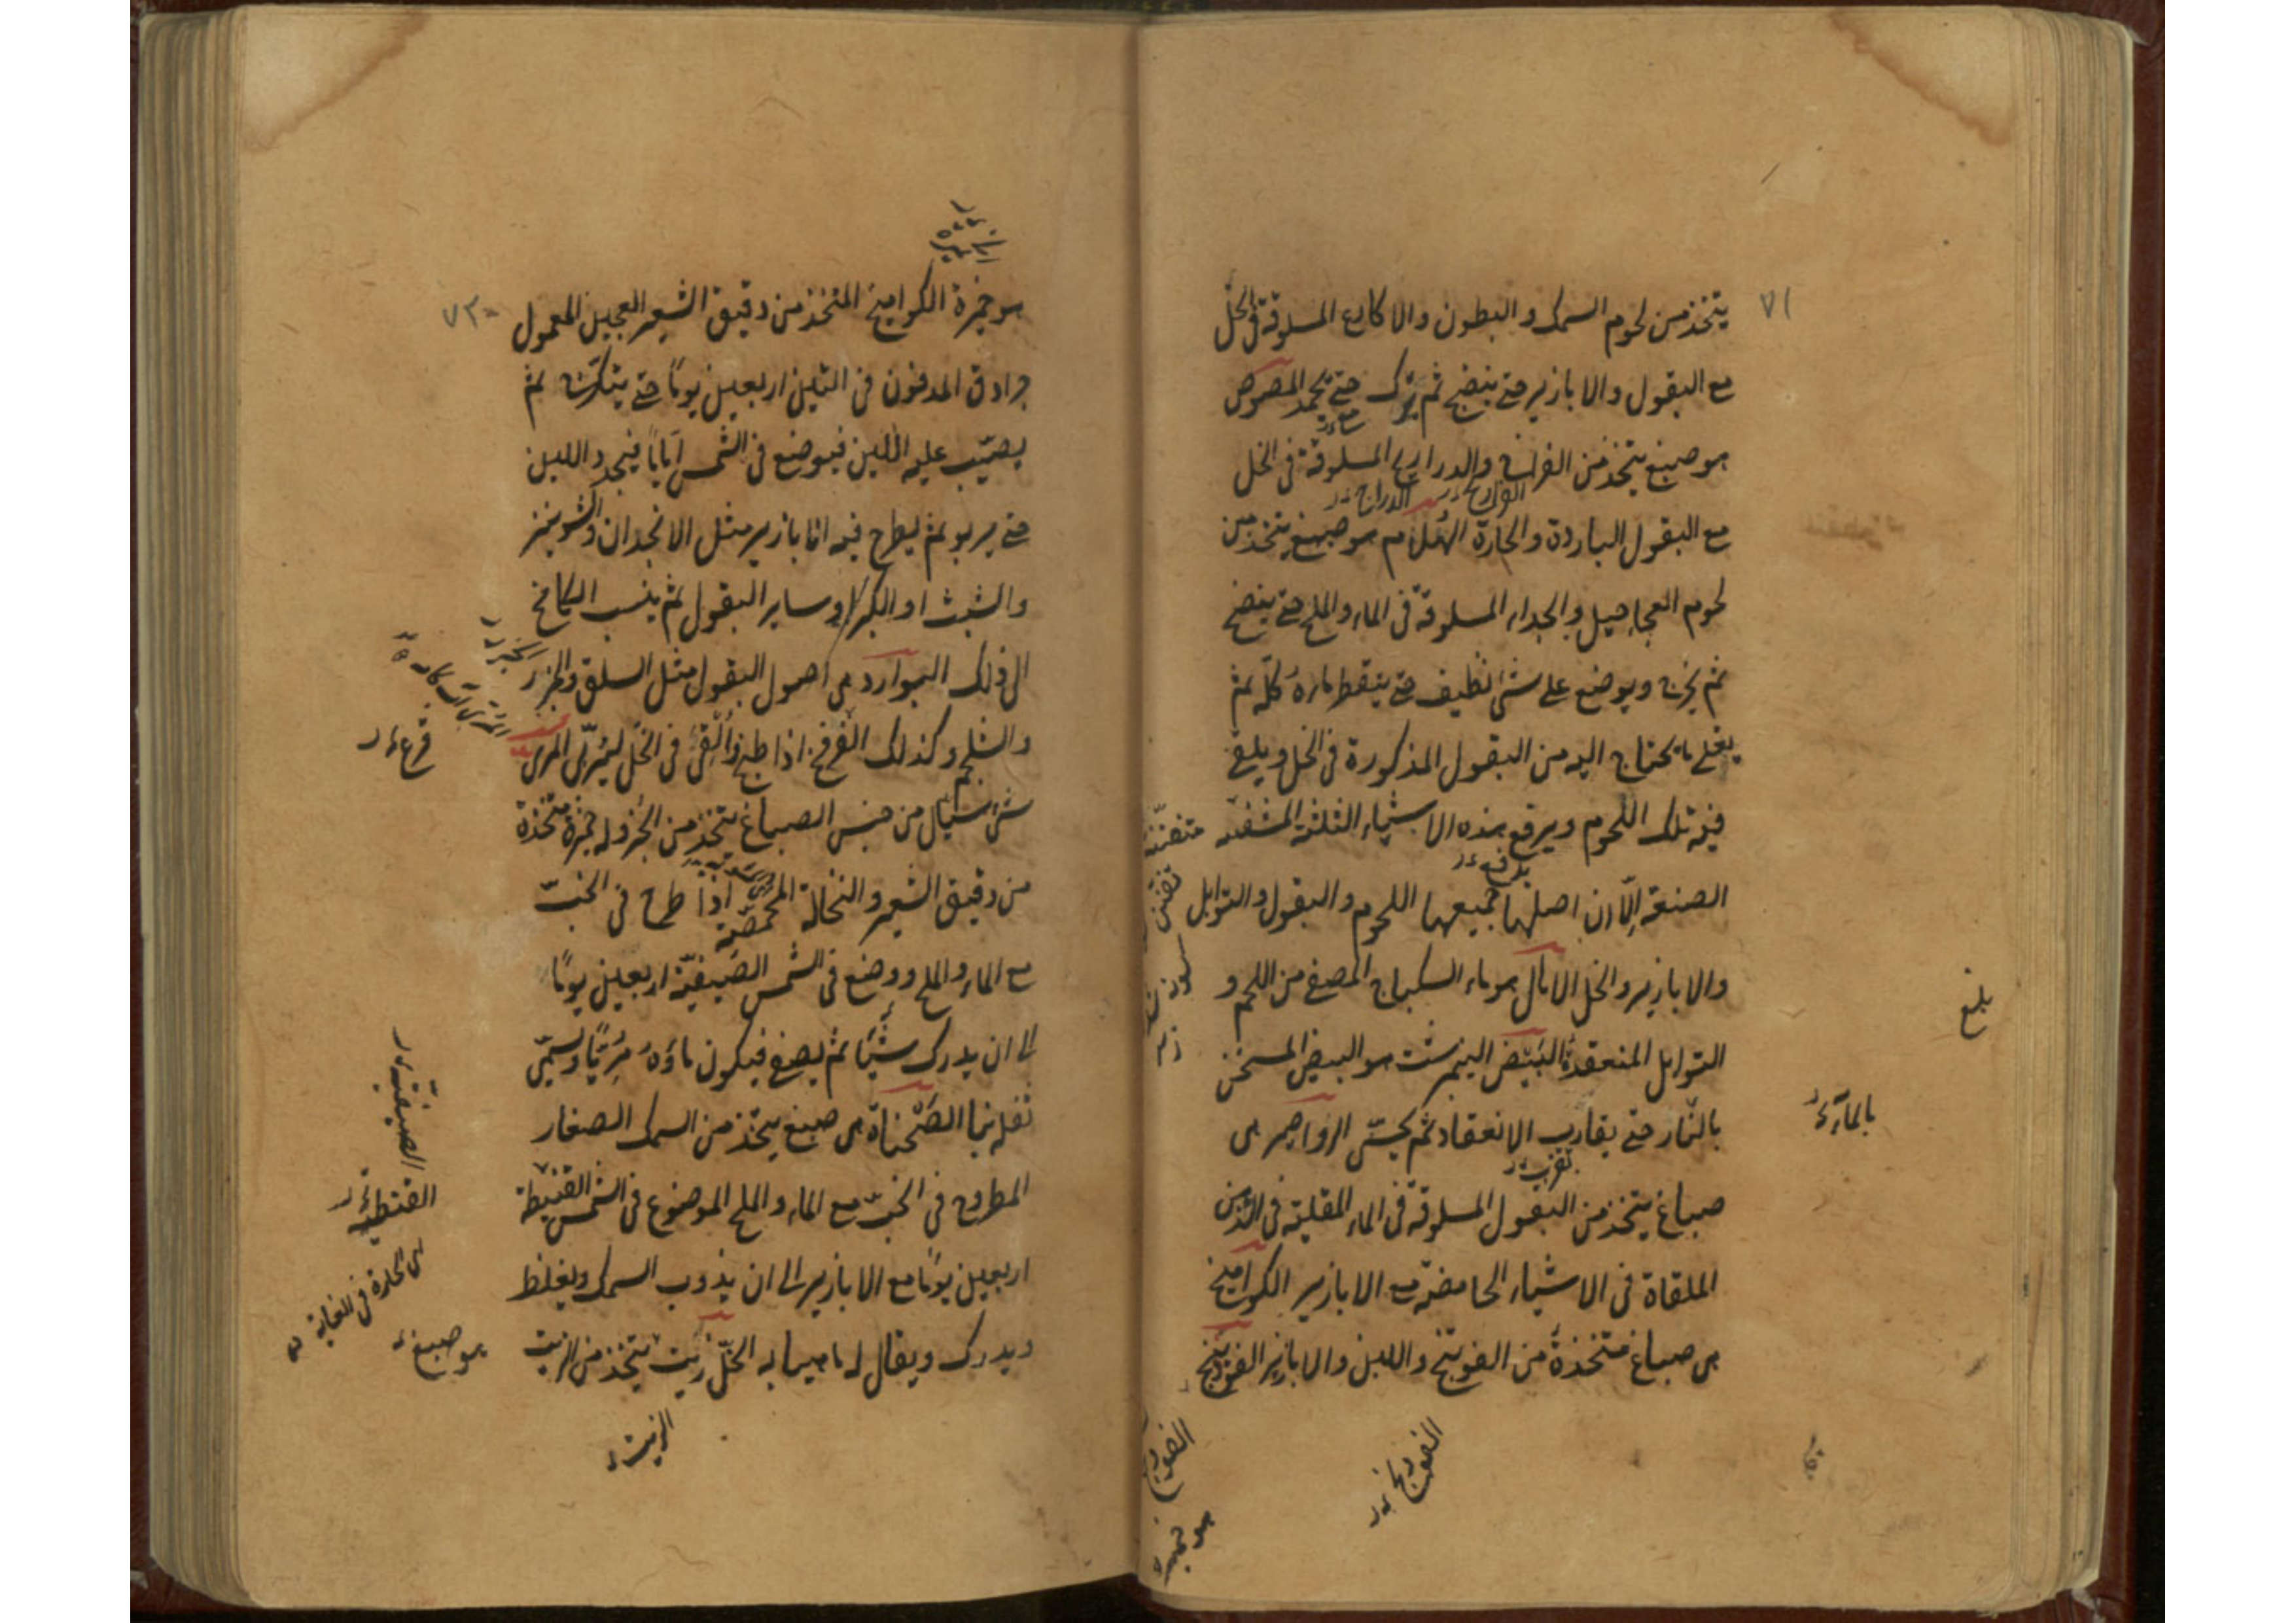 ٧١
يتخذ من لحوم السمك و البطون والاكارع المسلوقة في الخل
مع البقول والابازير حتى ينضج ثم يترك حتى يجمد المصوص
هو صبغ يتخذ من الفراخ والدراريج المسلوقة في الخل
مع البقول الباردة والحارة الهُلام هو صبغ يتخذ من
لحوم العجاجيل والجداء المسلوقة في الماء والملح حتى ينضج
ثم يخرج ويوضع على شئ نظيف حتى ينقط ماءه كلّه ثم
يغلى ما يحتاج اليه من البقول المذكورة في الخل ويلقى
فيه تلك اللحوم ويرفع هذه الاشياء الثلثة
الصنعة الّا ان اصلها جميعها اللحوم والبقول والتوابل
والابازير والخل الامال هو ماء السكباج المصفى من اللحم و
التوابل المنعقدة البَيْض النيمرشت هو البيض المسخن
بالنّار حتى يقارب الانعقاد ثم يحسّى الرواصير هى
صباغ يتخذ من البقول المسلوقة في الماء المقلية في الدهن
الملقاة في الاشياء الحامضة مع الابازير الكواميخ
هى صباغ متخذة من الفوتنج واللبن والابازير الفوذنج
الدراج
بلغ
بالماء
الفوذنج
هو خميرة
٧٢
هو خميرة الكواميخ المتخذ من دقيق الشعير العجين المعمول
جرادق المدفون في التبن اربعين يوماً حتى يتكرّج ثم
يصبّ عليه اللبن فيوضع في الشمس اياماً فيجدد اللبن
حتى يربو ثم يطرح فيه ابازير مثل الانجدان والشونيز
والشبث او الكبر او ساير البقول ثم ينسب الكامخ
الى ذلك البوارد هى اصول البقول مثل السلق والجزر
والشلجم وكذلك القرع اذا طبخ وأُلْقِىَ في الخل ليُربّى المرى
شئ سيّال من جنس الصباغ يتخذ من الخبز وله خميرة متخذة
من دقيق الشعير والنخالة المحمصّة اذا طرح في الخبّ
مع الماء والملح ووضع في الشمس الصيفيّة اربعين يوماً
الى ان يدرك شيئاً ثم يصفى فيكون ماؤه مِرِيّاً ويسمّى
ثفله بنا الصَّحْناة هى صبغ يتخذ من السمك الصغار
المطروح في الخبّ مع الماء والملح الموضوع في الشمس القيظيّة
اربعين يوماً مع الابازير الى ان يذوب السمك ويغلظ
ويدرك ويقال له ماهيابه الخلّ زيت يتخذ من الزيت
قرع
الصيفية
القيظية
اى الحارة في الغاية
هو صبغ
الزيت